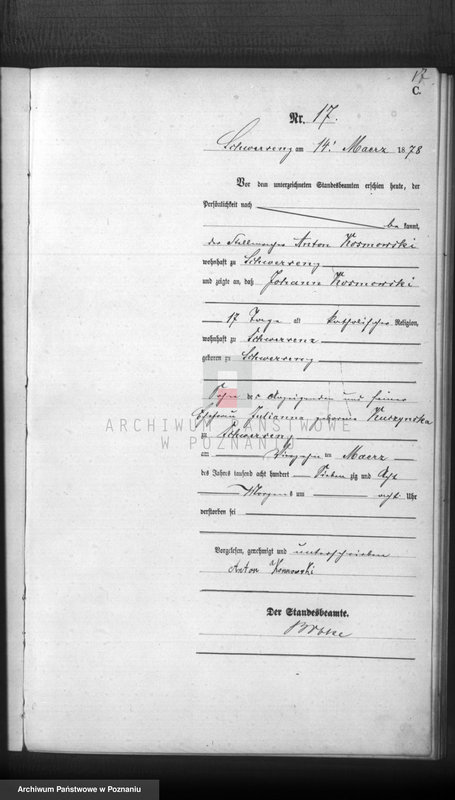 17
C.
Nr. 17.
Schwersenz am 14t. Maerz 1878
Vor dem unterzeichneten Standesbeamten erschien heute, der
Persönlichkeit nach
be kannt,
der Stellmacher Anton Kosmowski
wohnhaft zu Schwersenz
und zeigte an, daß Johann Kosmowski
17 Tage alt katholischer Religion,
wohnhaft zu Schwersenz
geboren zu Schwersenz
Sohn des Anzeigenden und seiner
Ehefrau Julianna geborene
zu Schwersenz
am Vierzehn ten Maerz
des Jahres tausend acht hundert Sieben zig und Acht
Morgens um acht Uhr
verstorben sei
Vorgelesen, genehmigt und unterschrieben
Anton Kosmowski
Der Standesbeamte.
ARCHIWUM PAŃSTWOWE
W POZNANIU
Archiwum Państwowe w Poznaniu